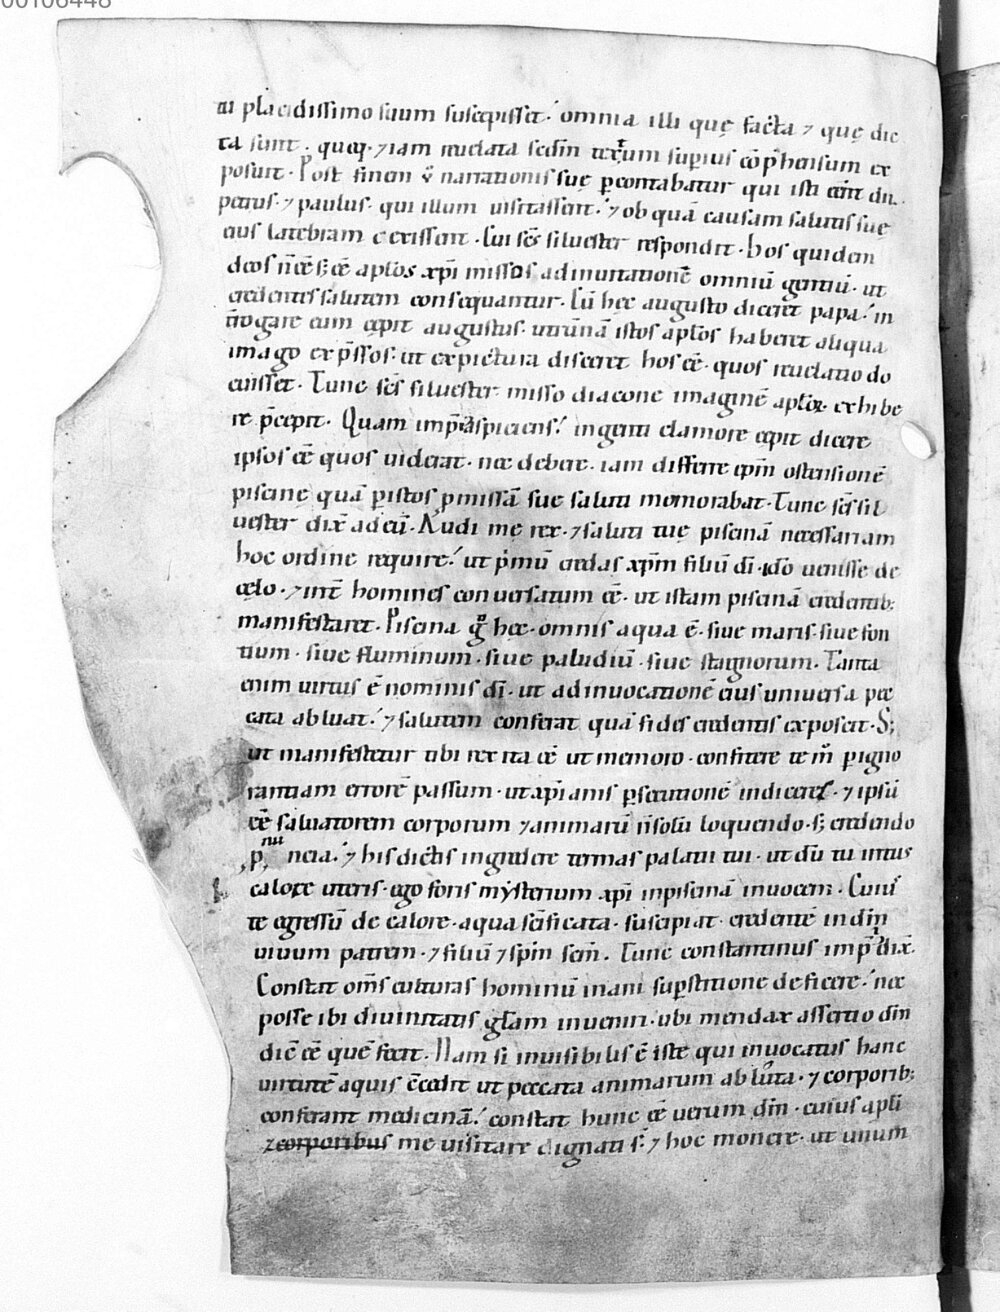 00106448
ni placidissimo sinum suscepisset. omnia illi quę facta ⁊ quę dic
ta sunt. queq; ⁊ iam reuelata sedm textum superius cōp̄hensum ex
posuit. Post finem v̄ narrationis suę ꝑcontabatur qui isti eēnt dii
petrus. ⁊ paulus. qui illum uisitassent. ⁊ ob quā causam salutis suę
eius latebram texissent. Cui scs̄ siluester respondit. hos quidem
deos n̄ eēs; eē aplōs xp̄i missos ad inuitationē omniū gentiū. ut
credentes salutem consequantur. Cū hęc augusto diceret papa. in
t̄rogare eum cepit augustus. utrūnā istos aplōs haberet aliqua
imago exp̄ssos. ut ex pictura disceret hos eē. quos reuelatio do
cuisset. Tunc scs̄ siluester misso diacone imaginē aplōꝝ exhibe
re p̄cepit. Quam imp̄r aspiciens. ingenti clamore cepit dicere
ipsos eē quos uiderat. nec debere. iam differre sp̄m ostensionē
piscine quā ꝑ istos ꝓmissā sue saluti memorabat. Tunc scs̄ sil
uester dix̄ ad eū. Audi me rex. ⁊ saluti tuę piscinā necessariam
hoc ordine require. ut p̄mū credas xp̄m filiū dī. idō uenisse de
cęlo. ⁊ int̄ homines conuersatum eē. ut istam piscinā credentib;
manifestaret. Piscina g̊ hęc. omnis aqua ē. siue maris. siue fon
tium. siue fluminum. siue paludiū. siue stagnorum. Tanta
enim uirtus ē nominis dī. ut ad inuocationē eius uniuersa pec
cata abluat. ⁊ salutem conferat quā fides credentis exposcit. S;
ut manifestetur tibi rex ita eē ut memoro. confitere te m̄ ꝑ igno
rantiam errorē passum. ut xp̄ianis ꝑsecutionē indiceres. ⁊ ipsū
eē saluatorem corporum ⁊ animarū n̄ solū loquendo. s; credendo
ꝓnuncia. ⁊ his dictis ingredere termas palatii tui. ut dū tu intus
calore uteris. ego foris mysterium xp̄i in piscinā inuocem. Cuius
te egressū de calore. aqua scīficata. suscipiat. credentē in dm̄
uiuum patrem. ⁊ filiū ⁊ sp̄m scm̄. Tunc constantinus imp̄r dix̄.
Constat om̄s culturas hominū inani suꝑstitione deficere. nec
posse ibi diuinitatis glām inueniri. ubi mendax assertio dm̄
dic̄ eē quē fecit. Nam si inuisibilis ē iste qui inuocatus hanc
uirtutē aquis c̄cedit ut peccata animarum abluta. ⁊ corporib;
conferant medicinā. constat hunc eē uerum dm̄. cuius apli
⁊ corporibus me uisitare dignati s̄. ⁊ hoc monere. ut unum